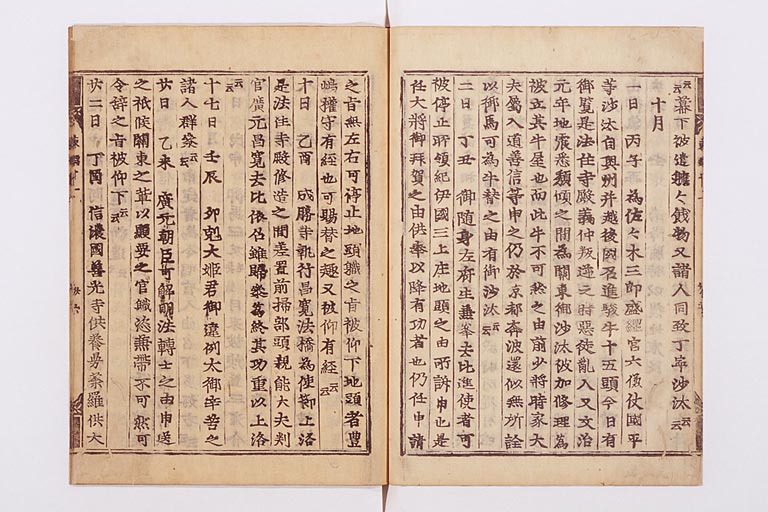 云〻幕下被遣贐々餞物又諸人同致丁寧沙汰云〻
十月
一日　丙子　為佐々木三郎盛綱官六傔仗國平
等沙汰自奥州并越後國召進駿牛十五頭今日有
御覽是法住寺殿義仲叛逆之時惡徒亂入又文治
元年地震悉頽傾之間為關東御沙汰被加修理為
被立其牛屋也而此牛不可然之由前少將時家大
夫屬入道善信等申之仍於京都奔波還似無所詮
以御馬可為牛替之由有御沙汰云〻
二日　丁丑　御随身左府生兼峯去比進使者可
被停止所領紀伊國三上庄地頭之由所訴申也是
任大將御拜賀之由供奉以降有功者也仍任申請
之旨無左右可停止地頭職之旨被仰下地頭者豊
嶋權守有經也可賜替之趣又被仰有經云〻
十日　乙酉　成勝寺執行昌寛法橋為使節上洛
是法住寺殿修造之間差置前掃部頭親能大夫判
官廣元昌寛去比依召雖歸參為終其功重以上洛
云〻
十七日　壬辰　卯剋大姫君御違例太御辛苦之
諸人群參云〻
廿日　乙未　廣元朝臣可解明法轉士之由申送
之祇候關東之輩以顯要之官職恣兼帶不可然可
令辞之旨被仰下云〻
廿二日　丁酉　信濃國善光寺供養曼荼羅供大